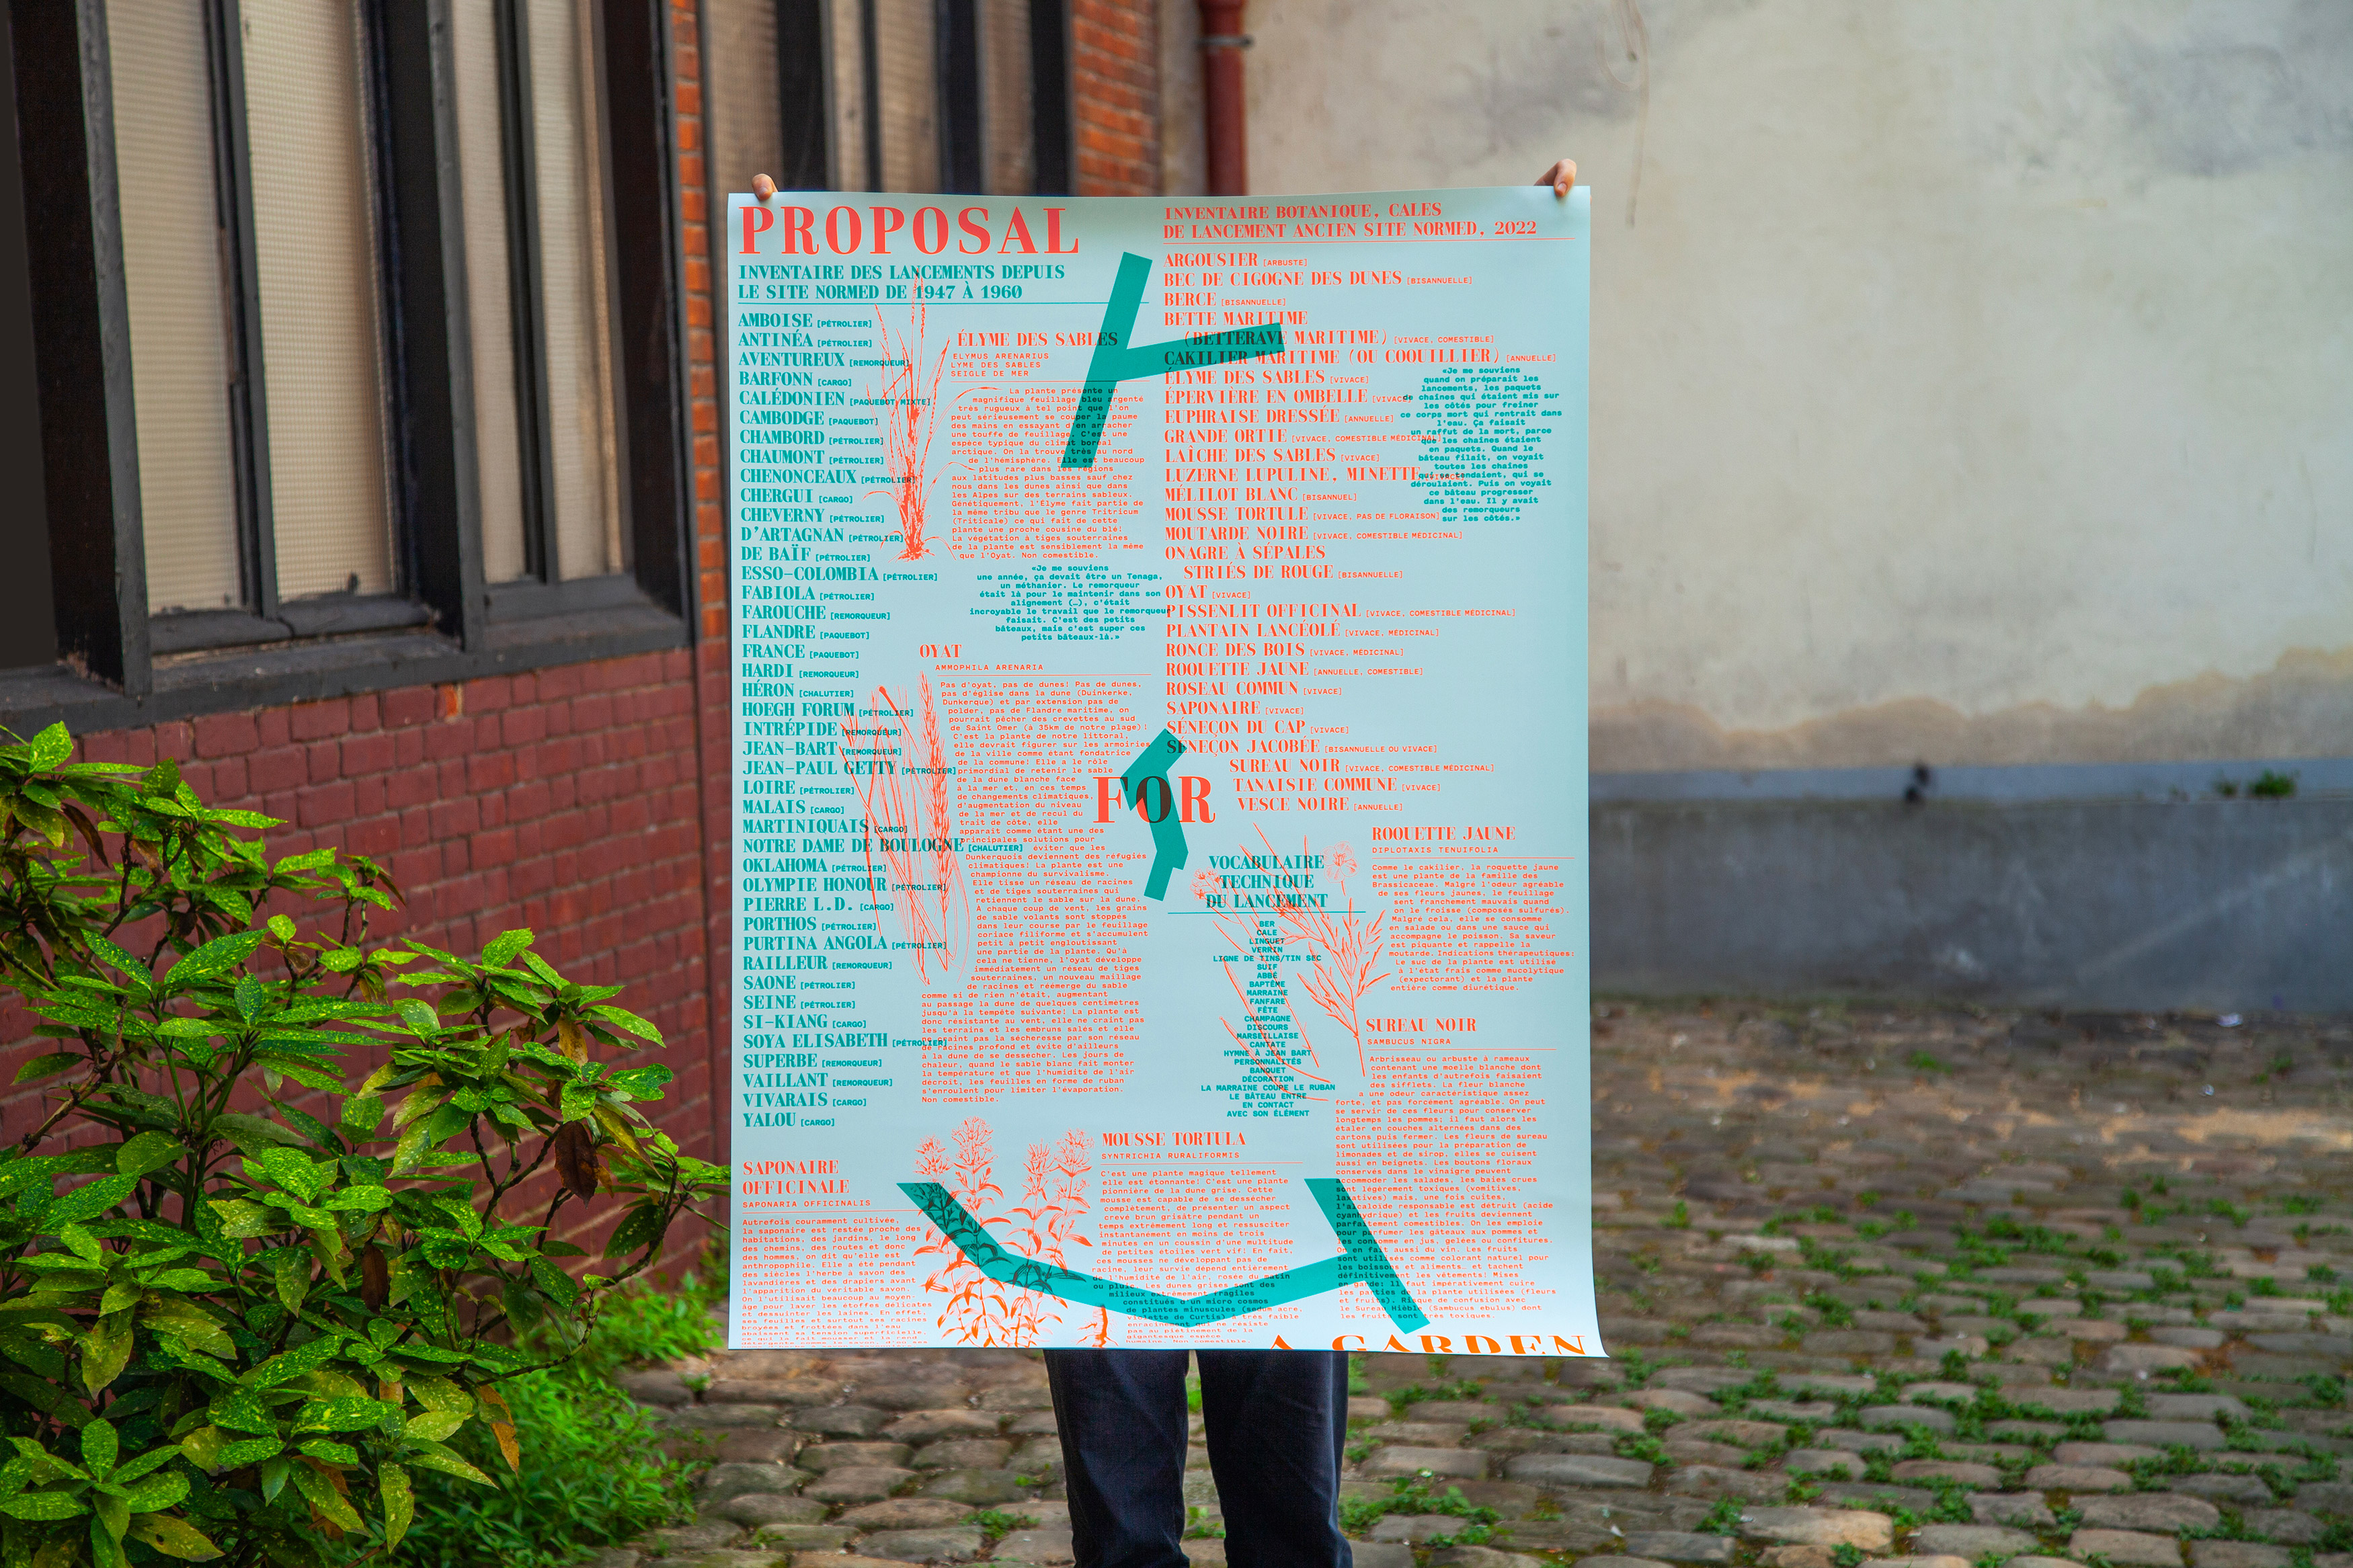 PROPOSAL
INVENTAIRE DES LANCEMENTS DEPUIS
LE SITE NORMED DE 1947 À 1960
AMBOISE [PÉTROLIER]
ANTINÉA [PÉTROLIER]
AVENTUREUX [REMORQUEUR]
BARFONN [CARGO]
CALÉDONIEN [PAQUEBOT MIXTE]
CAMBODGE [PAQUEBOT]
CHAMBORD [PÉTROLIER]
CHAUMONT [PÉTROLIER]
CHENONCEAUX [PÉTROLIER]
CHERGUI [CARGO]
CHEVERNY [PÉTROLIER]
D'ARTAGNAN [PÉTROLIER]
DE BAÏF [PÉTROLIER]
ESSO-COLOMBIA [PÉTROLIER]
FABIOLA [PÉTROLIER]
FAROUCHE [REMORQUEUR]
FLANDRE [PAQUEBOT]
FRANCE [PAQUEBOT]
HARDI [REMORQUEUR]
HÉRON [CHALUTIER]
HOEGH FORUM [PÉTROLIER]
INTRÉPIDE [REMORQUEUR]
JEAN-BART [REMORQUEUR]
JEAN-PAUL GETTY [PÉTROLIER]
LOIRE [PÉTROLIER]
MALAIS [CARGO]
MARTINIQUAIS [CARGO]
NOTRE DAME DE BOULOGNE [CHALUTIER]
OKLAHOMA [PÉTROLIER]
OLYMPIE HONOUR [PÉTROLIER]
PIERRE L.D. [CARGO]
PORTHOS [PÉTROLIER]
PURTINA ANGOLA [PÉTROLIER]
RAILLEUR [REMORQUEUR]
SAONE [PÉTROLIER]
SEINE [PÉTROLIER]
SI-KIANG [CARGO]
SOYA ELISABETH [PÉTROLIER]
SUPERBE [REMORQUEUR]
VAILLANT [REMORQUEUR]
VIVARAIS [CARGO]
YALOU [CARGO]
SAPONAIRE
OFFICINALE
SAPONARIA OFFICINALIS
Autrefois couramment cultivée,
la saponaire est restée proche des
habitations, des jardins, le long
des chemins, des routes et donc
des hommes, on dit qu'elle est
anthropophile. Elle a été pendant
des siècles l'herbe à savon des
lavandières et des drapiers avant
l'apparition du véritable savon.
On l'utilisait beaucoup au moyen-
âge pour laver les étoffes délicates
et dessuinter les laines. En effet,
ses feuilles et surtout ses racines
broyées et frottées dans l'eau
abaissent sa tension superficielle,
ÉLYME DES SABLES
ELYMUS ARENARIUS
LYME DES SABLES
SEIGLE DE MER
La plante présente un
magnifique feuillage bleu argenté
très rugueux à tel point que l'on
peut sérieusement se couper la paume
des mains en essayant d'en arracher
une touffe de feuillage. C'est une
espèce typique du climat boréal
arctique. On la trouve très au nord
de l'hémisphère. Elle est beaucoup
plus rare dans les régions
aux latitudes plus basses sauf chez
nous dans les dunes ainsi que dans
les Alpes sur des terrains sableux.
Génétiquement, l'Élyme fait partie de
la même tribu que le genre Tritricum
(Triticale) ce qui fait de cette
plante une proche cousine du blé!
La végétation à tiges souterraines
de la plante est sensiblement la même
que l'Oyat. Non comestible.
«Je me souviens
une année, ça devait être un Tenaga,
un méthanier. Le remorqueur
était là pour le maintenir dans son
alignement (…), c'était
incroyable le travail que le remorqueur
faisait. C'est des petits
bâteaux, mais c'est super ces
petits bâteaux-là.»
OYAT
AMMOPHILA ARENARIA
Pas d'oyat, pas de dunes! Pas de dunes,
pas d'église dans la dune (Duinkerke,
Dunkerque) et par extension pas de
polder, pas de Flandre maritime, on
pourrait pêcher des crevettes au sud
de Saint Omer (à 35km de notre plage)!
C'est la plante de notre littoral,
elle devrait figurer sur les armoiries
de la ville comme étant fondatrice
de la commune! Elle a le rôle
primordial de retenir le sable
de la dune blanche face
à la mer et, en ces temps
de changements climatiques,
d'augmentation du niveau
de la mer et de recul du
trait de côte, elle
apparaît comme étant une des
principales solutions pour
éviter que les
Dunkerquois deviennent des réfugiés
climatiques! La plante est une
championne du survivalisme.
Elle tisse un réseau de racines
et de tiges souterraines qui
retiennent le sable sur la dune.
À chaque coup de vent, les grains
de sable volants sont stoppés
dans leur course par le feuillage
coriace filiforme et s'accumulent
petit à petit engloutissant
une partie de la plante. Qu'à
cela ne tienne, l'oyat développe
immédiatement un réseau de tiges
souterraines, un nouveau maillage
de racines et réémerge du sable
comme si de rien n'était, augmentant
au passage la dune de quelques centimètres
jusqu'à la tempête suivante! La plante est
donc résistante au vent, elle ne craint pas
les terrains et les embruns salés et elle
ne craint pas la sécheresse par son réseau
de racines profond et évite d'ailleurs
à la dune de se dessécher. Les jours de
chaleur, quand le sable blanc fait monter
la température et que l'humidité de l'air
décroît, les feuilles en forme de ruban
s'enroulent pour limiter l'évaporation.
Non comestible.
MOUSSE TORTULA
SYNTRICHIA RURALIFORMIS
C'est une plante magique tellement
elle est étonnante! C'est une plante
pionnière de la dune grise. Cette
mousse est capable de se dessécher
complètement, de présenter un aspect
crevé brun grisâtre pendant un
temps extrêmement long et ressusciter
instantanément en moins de trois
minutes en un coussin d'une multitude
de petites étoiles vert vif! En fait,
ces mousses ne développant pas de
racine, leur survie dépend entièrement
de l'humidité de l'air, rosée du matin
ou pluie. Les dunes grises sont des
milieux extrêmement fragiles
constitués d'un micro cosmos
de plantes minuscules (sedum acre,
violette de Curtis) à très faible
enracinement qui ne résiste
pas au piétinement de la
gigantesque espèce
humaine. Non comestible.
INVENTAIRE BOTANIQUE, CALES
DE LANCEMENT ANCIEN SITE NORMED, 2022
ARGOUSIER [ARBUSTE]
BEC DE CIGOGNE DES DUNES [BISANNUELLE]
BERCE [BISANNUELLE]
BETTE MARITIME
(BETTERAVE MARITIME) [VIVACE, COMESTIBLE]
CAKILIER MARITIME (OU COQUILLIER) [ANNUELLE]
ÉLYME DES SABLES [VIVACE]
ÉPERVIÈRE EN OMBELLE [VIVACE]
EUPHRAISE DRESSÉE [ANNUELLE]
GRANDE ORTIE [VIVACE, COMESTIBLE MÉDICINAL]
LAÎCHE DES SABLES [VIVACE]
LUZERNE LUPULINE, MINETTE
MÉLILOT BLANC [BISANNUEL]
MOUSSE TORTULE [VIVACE, PAS DE FLORAISON]
MOUTARDE NOIRE [VIVACE, COMESTIBLE MÉDICINAL]
ONAGRE À SÉPALES
STRIÉS DE ROUGE [BISANNUELLE]
OYAT [VIVACE]
PISSENLIT OFFICINAL [VIVACE, COMESTIBLE MÉDICINAL]
PLANTAIN LANCÉOLÉ [VIVACE, MÉDICINAL]
RONCE DES BOIS [VIVACE, MÉDICINAL]
ROQUETTE JAUNE [ANNUELLE, COMESTIBLE]
ROSEAU COMMUN [VIVACE]
SAPONAIRE [VIVACE]
SÉNEÇON DU CAP [VIVACE]
SÉNEÇON JACOBÉE [BISANNUELLE OU VIVACE]
SUREAU NOIR [VIVACE, COMESTIBLE MÉDICINAL]
TANAISIE COMMUNE [VIVACE]
VESCE NOIRE [ANNUELLE]
«Je me souviens
quand on préparait les
lancements, les paquets
de chaînes qui étaient mis sur
les côtés pour freiner
ce corps mort qui rentrait dans
l'eau. Ça faisait
un raffut de la mort, parce
que les chaînes étaient
en paquets. Quand le
bâteau filait, on voyait
toutes les chaînes
qui se tendaient, qui se
déroulaient. Puis on voyait
ce bâteau progresser
dans l'eau. Il y avait
des remorqueurs
sur les côtés.»
FOR
VOCABULAIRE
TECHNIQUE
DU LANCEMENT
BER
CALE
LINGUET
VERRIN
LIGNE DE TINS/TIN SEC
SUIF
ABBÉ
BAPTÊME
MARRAINE
FANFARE
FÊTE
CHAMPAGNE
DISCOURS
MARSEILLAISE
CANTATE
HYMNE À JEAN BART
PERSONNALITÉS
BANQUET
DÉCORATION
LA MARRAINE COUPE LE RUBAN
LE BÂTEAU ENTRE
EN CONTACT
AVEC SON ÉLÉMENT
ROQUETTE JAUNE
DIPLOTAXIS TENUIFOLIA
Comme le cakilier, la roquette jaune
est une plante de la famille des
Brassicaceae. Malgré l'odeur agréable
de ses fleurs jaunes, le feuillage
sent franchement mauvais quand
on le froisse (composés sulfurés).
Malgré cela, elle se consomme
en salade ou dans une sauce qui
accompagne le poisson. Sa saveur
est piquante et rappelle la
moutarde. Indications thérapeutiques:
Le suc de la plante est utilisé
à l'état frais comme mucolytique
(expectorant) et la plante
entière comme diurétique.
SUREAU NOIR
SAMBUCUS NIGRA
Arbrisseau ou arbuste à rameaux
contenant une moelle blanche dont
les enfants d'autrefois faisaient
des sifflets. La fleur blanche
a une odeur caractéristique assez
forte, et pas forcément agréable. On peut
se servir de ces fleurs pour conserver
longtemps les pommes; il faut alors les
étaler en couches alternées dans des
cartons puis fermer. Les fleurs de sureau
sont utilisées pour la préparation de
limonades et de sirop, elles se cuisent
aussi en beignets. Les boutons floraux
conservés dans le vinaigre peuvent
accommoder les salades, les baies crues
sont légèrement toxiques (vomitives,
laxatives) mais, une fois cuites,
l'alcaloïde responsable est détruit (acide
cyanhydrique) et les fruits deviennent
parfaitement comestibles. On les emploie
pour parfumer les gâteaux aux pommes et
on les consomme en jus, gelées ou confitures.
On en fait aussi du vin. Les fruits
sont utilisés comme colorant naturel pour
les boissons et aliments… et tachent
définitivement les vêtements! Mises
en garde: Il faut impérativement cuire
les parties de la plante utilisées (fleurs
et fruits). Risque de confusion avec
le Sureau Hièble (Sambucus ebulus) dont
les fruits sont très toxiques.
A GARDEN